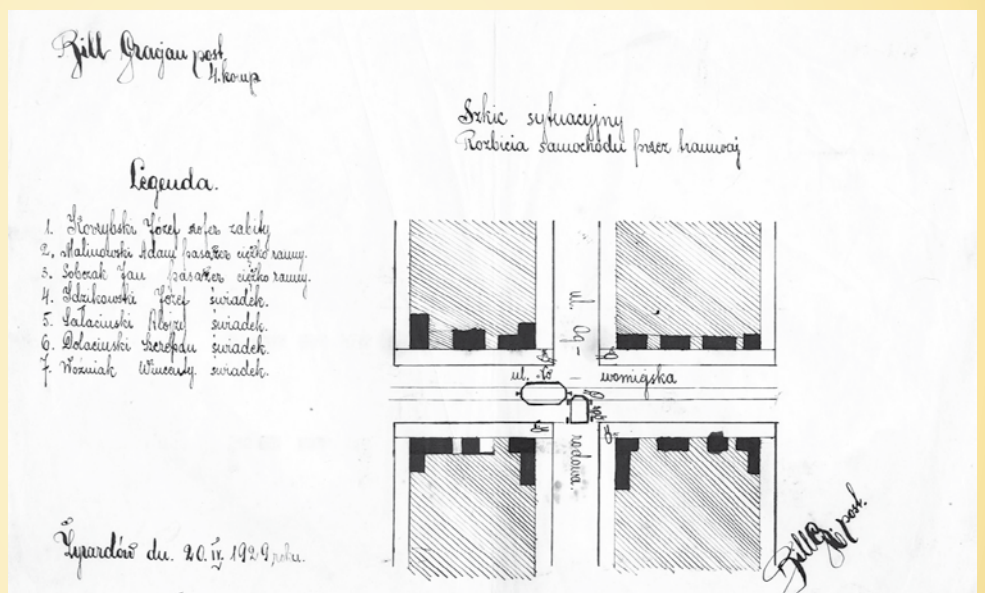 Rill Gracjan post.
4. komp
Szkic sytuacyjny
Rozbicia samochodu przez tramwaj
Legenda.
1. Korzybski Józef szofer zabity
2. Malinowski Adam pasażer ciężko ranny.
3. Sobczak Jan pasażer ciężko ranny.
4. Idzikowski Józef świadek.
5. Sałaciński Alojzy świadek.
6. Dolaciński Szczepan świadek.
7. Woźniak Wincenty. świadek.
ul. Og-
ul. Ło womigska
rodowa.
Żyrardów dn. 20.IV.1929 roku.
Rill G post.